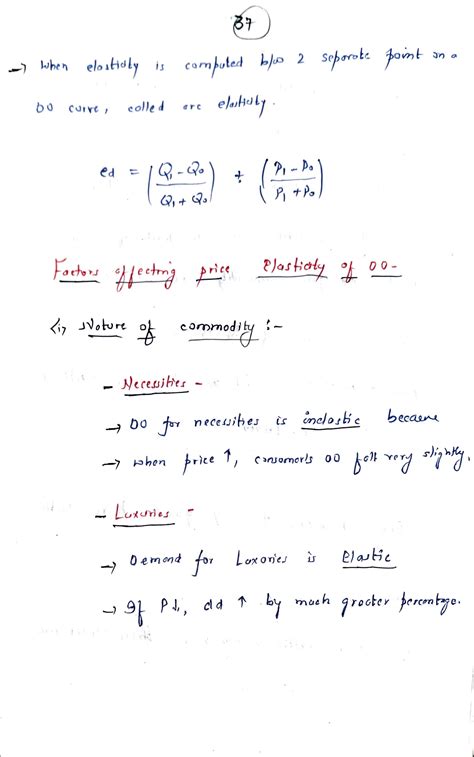 37
→ When elasticity is computed b/w 2 separate point on a
DD curve, called arc elasticity.
ed = (Q₁ - Q₀ / Q₁ + Q₀) ÷ (P₁ - P₀ / P₁ + P₀)
Factors affecting price Elasticity of DD -
<i> Nature of commodity :-
- Necessities -
→ DD for necessities is inelastic because
→ when price ↑, consumers DD fall very slightly.
- Luxuries -
→ Demand for Luxories is Elastic
→ If P↓, dd ↑ by much greater percentage.